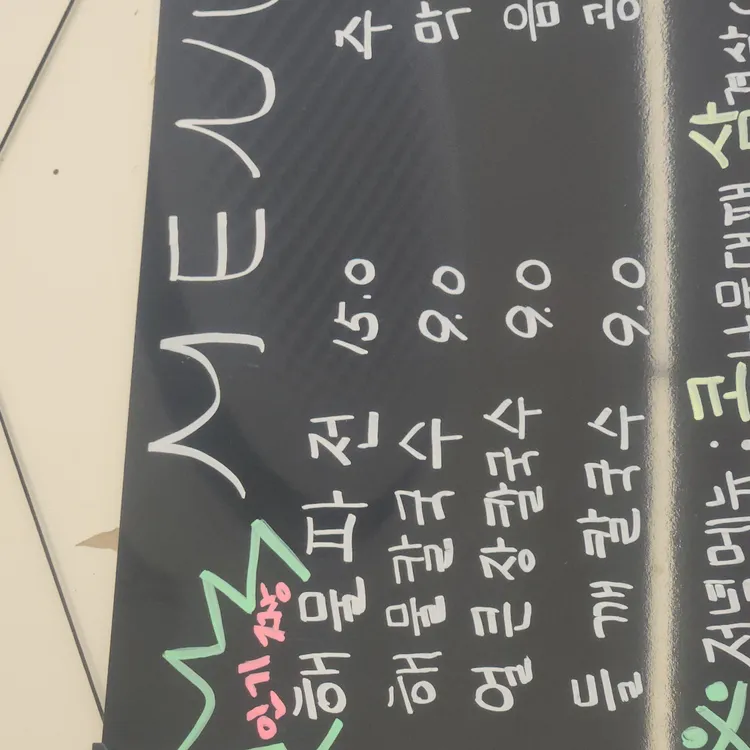 MENU
인기 짱
해물파전 15.0 수
해물칼국수 9.0 막
얼큰장칼국수 9.0 음
들깨칼국수 9.0 공
※저녁메뉴 : 대패 삼겹살(